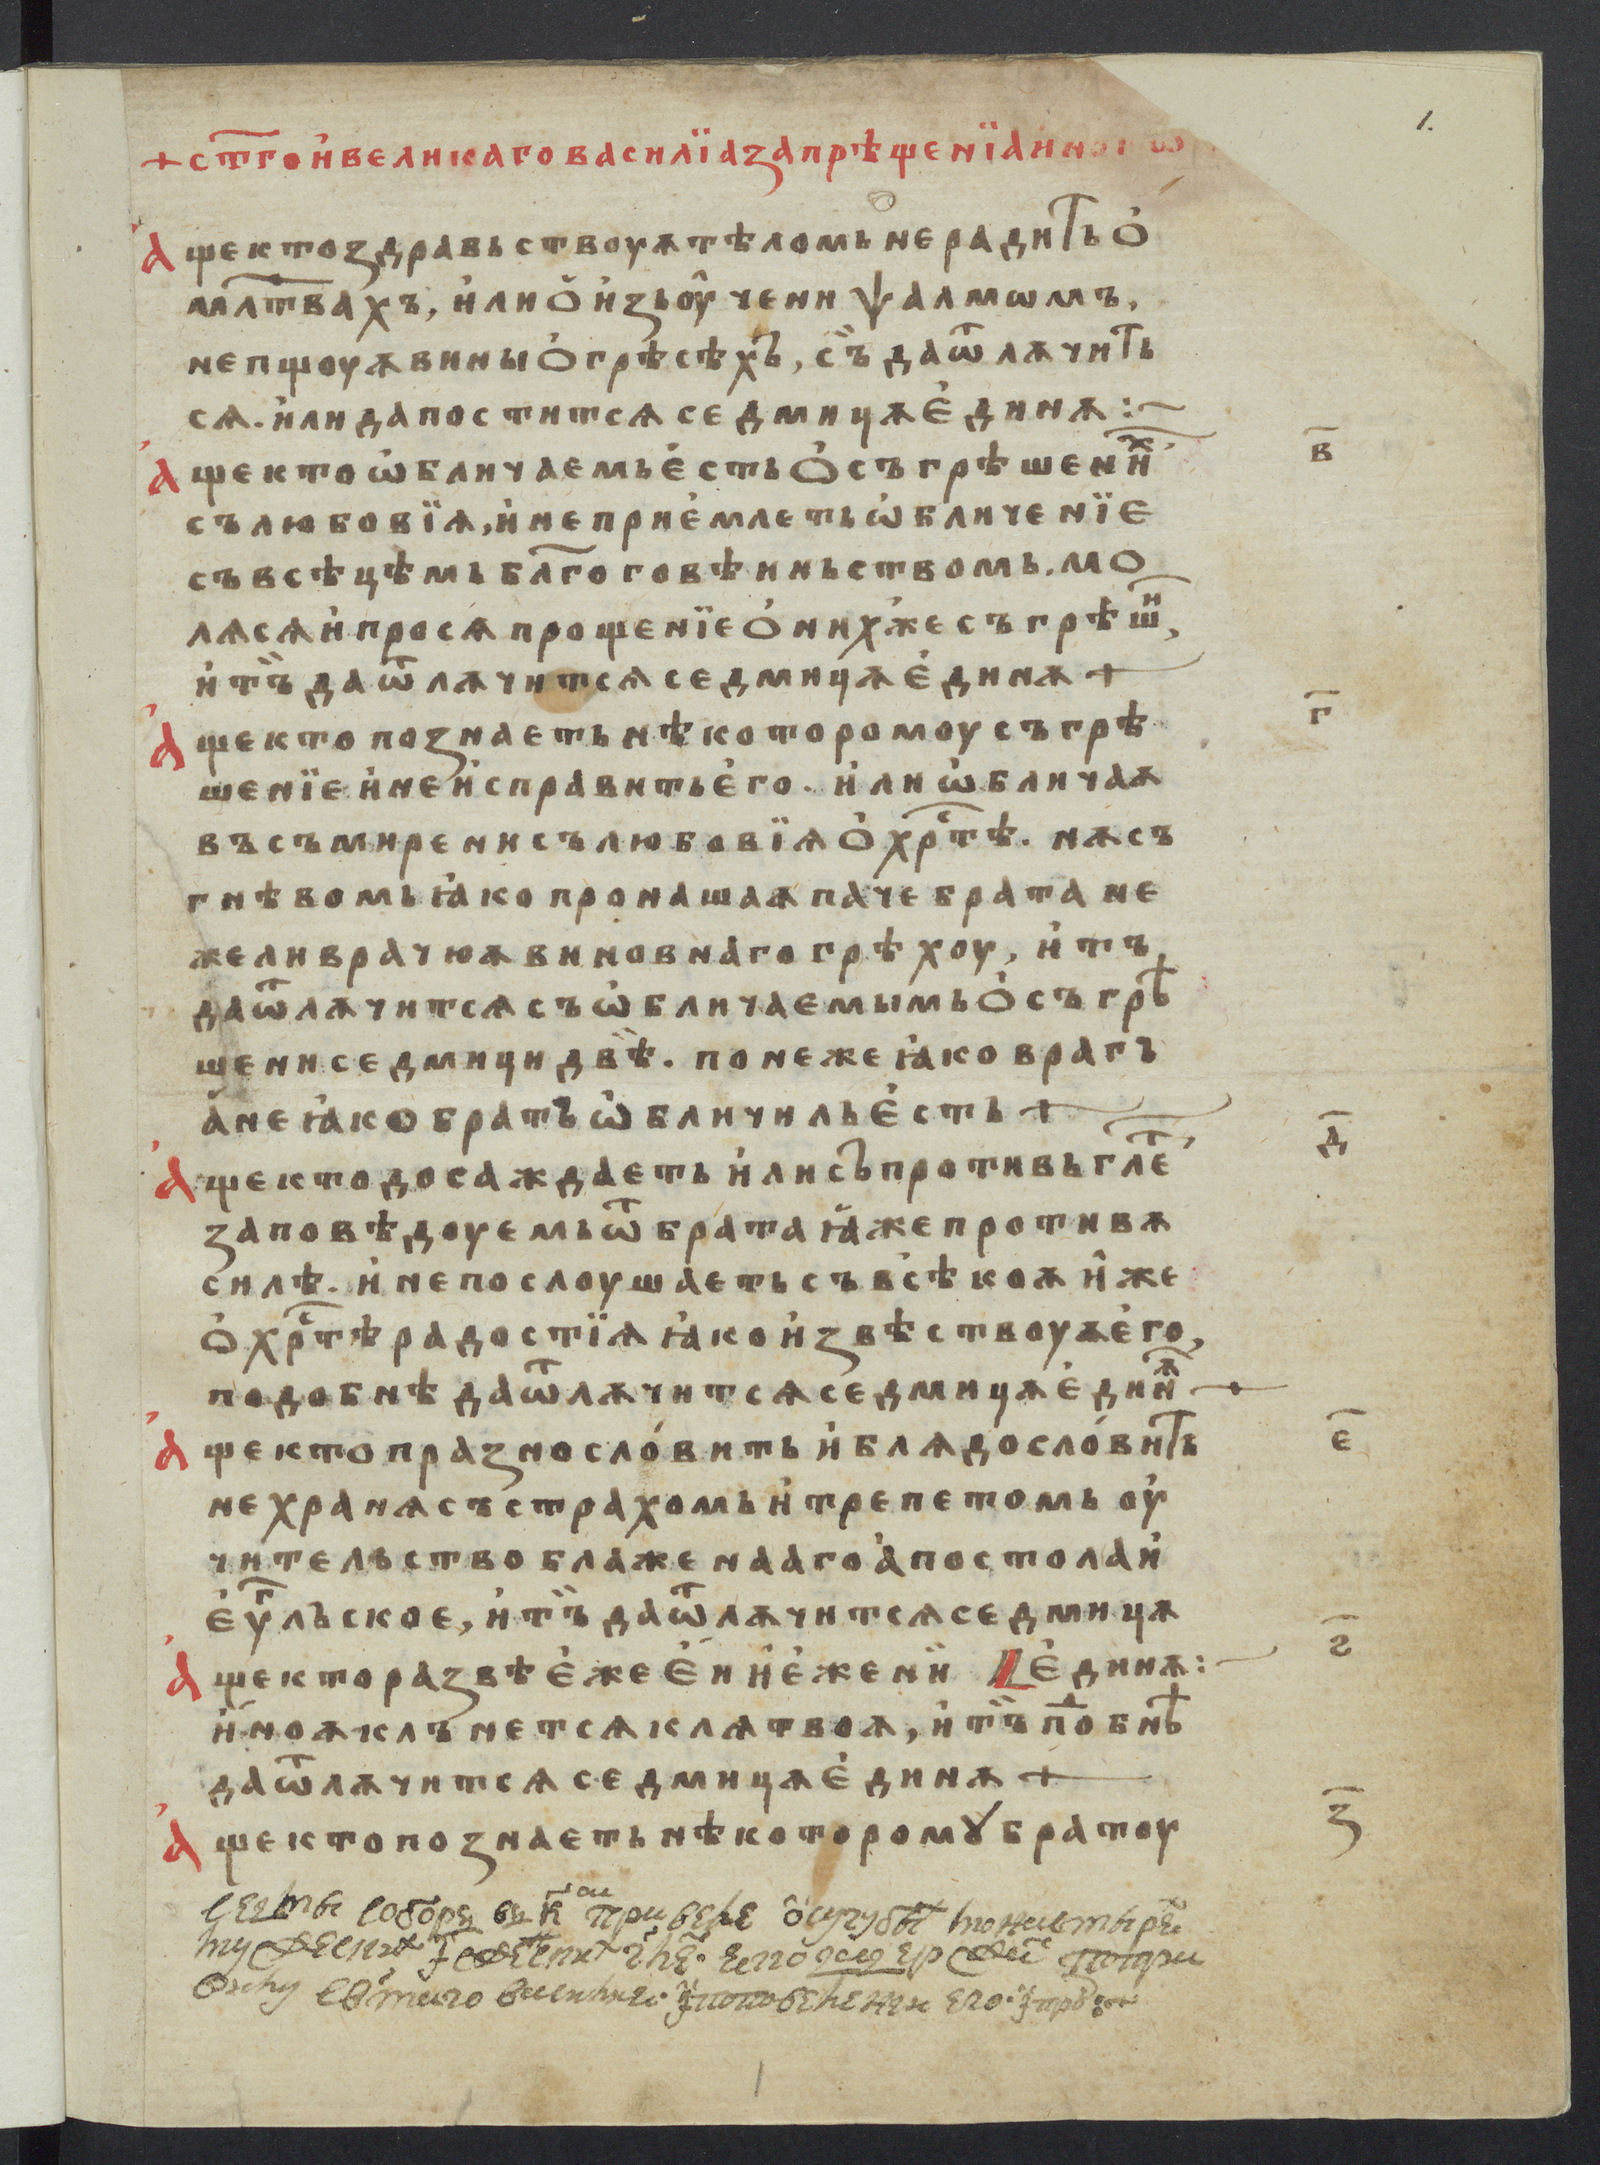 1.
+ ст҃го и҆ великаго васил​їа запрѣщенїа и҆нокѡ
А҆ще кто здравьствоуѫ тѣломь нерадитъ о҆
мл҃твахъ, и҆ли о҆ и҆зьоу҆чени ѱалмѡмъ,
непщоуѫ вины о҆ грѣсѣхъ, съ̏ да ѿлѫчитъ
сѧ. и҆ли да поститсѧ седмицѫ є҆динѫ :~
в҃
А҆ще кто ѡ҆бличаемь е҆сть о҆ съгрѣшени
съ любовїѧ, и҆ неприе҆млеть ѡ҆бличенїе
съ всѣцѣмь бл҃гоговѣиньствомь. мо
лѧсѧ и҆ просѧ прощенїе о҆ нихже съгрѣши,
и҆ тъ̏ да ѿлѫчитсѧ седмицѫ є҆динѫ +
г҃
А҆ще кто познаеть нѣкоторомоу съгрѣ
шенїе и҆ неи҆справить е҆го. и҆ли ѡ҆бличаѫ
въ съмирени съ любовїѧ о҆ хрс҃тѣ. нѫ съ
гнѣвомь ꙗ҆ко пронашаѫ паче брата не
жели врачюѫ виновнаго грѣхоу, и҆ тъ
да ѿлѫчитсѧ съ ѡ҆бличаемымь о҆ съгрѣ
шени седмици двѣ̏. понеже ꙗ҆ко врагъ
а҆ не ꙗ҆ко братъ ѡ҆бличиль є҆сть +
д҃
А҆ще кто досаждаеть и҆ли съпротивь гл҃ет
заповѣдоуемь ѿ брата ꙗ҆же противѫ
силѣ. и҆ не послоушаеть съ всѣкоѫ и҆же
о҆ хрс҃тѣ радостїѧ ꙗ҆ко и҆звѣствоуѫ е҆го,
подобнѣ да ѿлѫчитсѧ седмицѫ є҆динѫ +
е҃
А҆ще кто празнословить и҆ блѧдословитъ
не хранѧ съ страхомь и҆ трепетомь оу҆
чительство блаженааго а҆постола и҆
е҆уг҃льское, и҆ тъ̏ да ѿлѫчитсѧ седмицѫ
ѕ҃
А҆ще кто развѣ е҆же е҆и и҆ е҆же ни є҆динѫ :~
и҆ноѫ кльнетсѧ клѧтвоѫ, и҆ тъ̏ под҃обнѣ
да ѿлѫчитсѧ седмицѫ є҆динѫ +
з҃
А҆ще кто познаеть нѣкоторомꙋ братоу